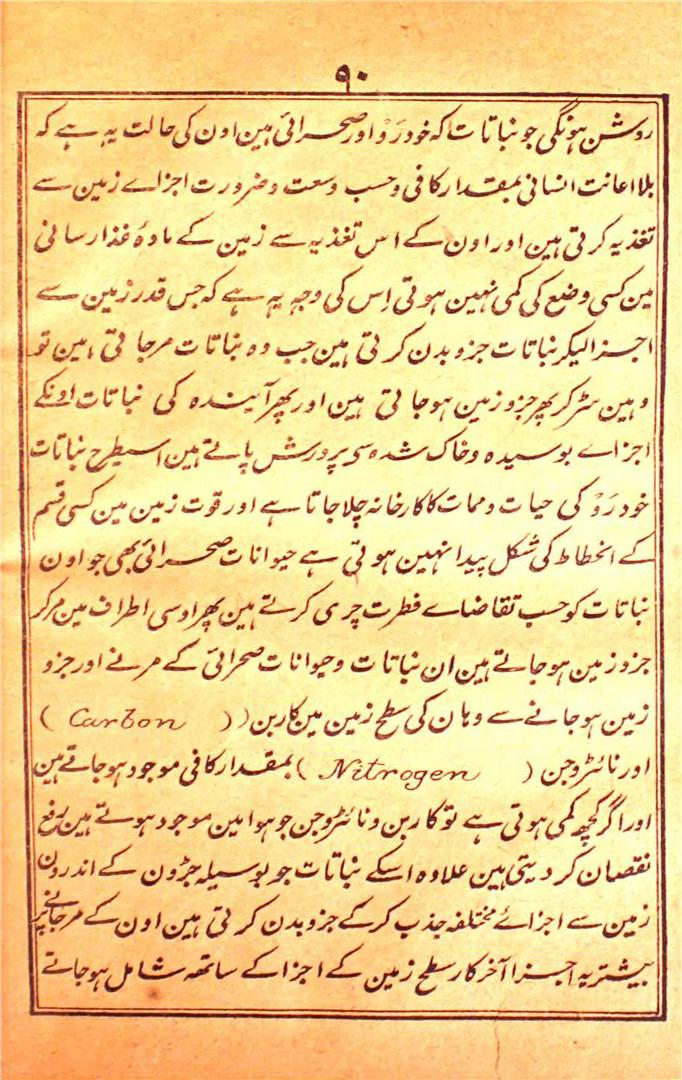 ۹۰
روشن ہونگی جو نباتات کہ خودرَوْ اور صحرائی ہین اون کی حالت یہ ہے کہ
بلا اعانت انسانی بمقدار کافی و حسب وسعت و ضرورت اجزاے زمین سے
تغذیہ کرتی ہین اور اون کے اس تغذیہ سے زمین کے مادۂ غذا رسانی
مین کسی وضع کی کمی نہین ہوتی اِس کی وجہ یہ ہے کہ جس قدر زمین سے
اجزا لیکر نباتات جزو بدن کرتی ہین جب وہ نباتات مرجاتی ہین تو
وہین سڑ کر پھر جزو زمین ہوجاتی ہین اور پھر آیندہ کی نباتات اونکے
اجزاے بوسیدہ و خاک شدہ سے پرورش پاتے ہین اسیطرح نباتات
خودرَوْ کی حیات و ممات کا کارخانہ چلا جاتا ہے اور قوت زمین مین کسی قسم
کے انحطاط کی شکل پیدا نہین ہوتی ہے حیوانات صحرائی بھی جو اون
نباتات کو حسب تقاضاے فطرت چری کرتے ہین پھر اوسی اطراف مین مرکر
جزو زمین ہوجاتے ہین ان نباتات و حیوانات صحرائی کے مرنے اور جزو
زمین ہوجانے سے وہان کی سطح زمین مین کاربن (( Carbon )
اور نائٹروجن ( Nitrogen ) بمقدار کافی موجود ہوجاتے ہین
اور اگر کچھ کمی ہوتی ہے تو کاربن و نائٹروجن جو ہوا مین موجود ہوتے ہین رفع
نقصان کر دیتی ہین علاوہ اسکے نباتات جو بوسیلہ جڑون کے اندرون
زمین سے اجزائے مختلفہ جذب کرکے جزو بدن کرتی ہین اون کے مرجانے پر
بیشتر یہ اجزا آخر کار سطح زمین کے اجزا کے ساتھہ شامل ہوجاتے